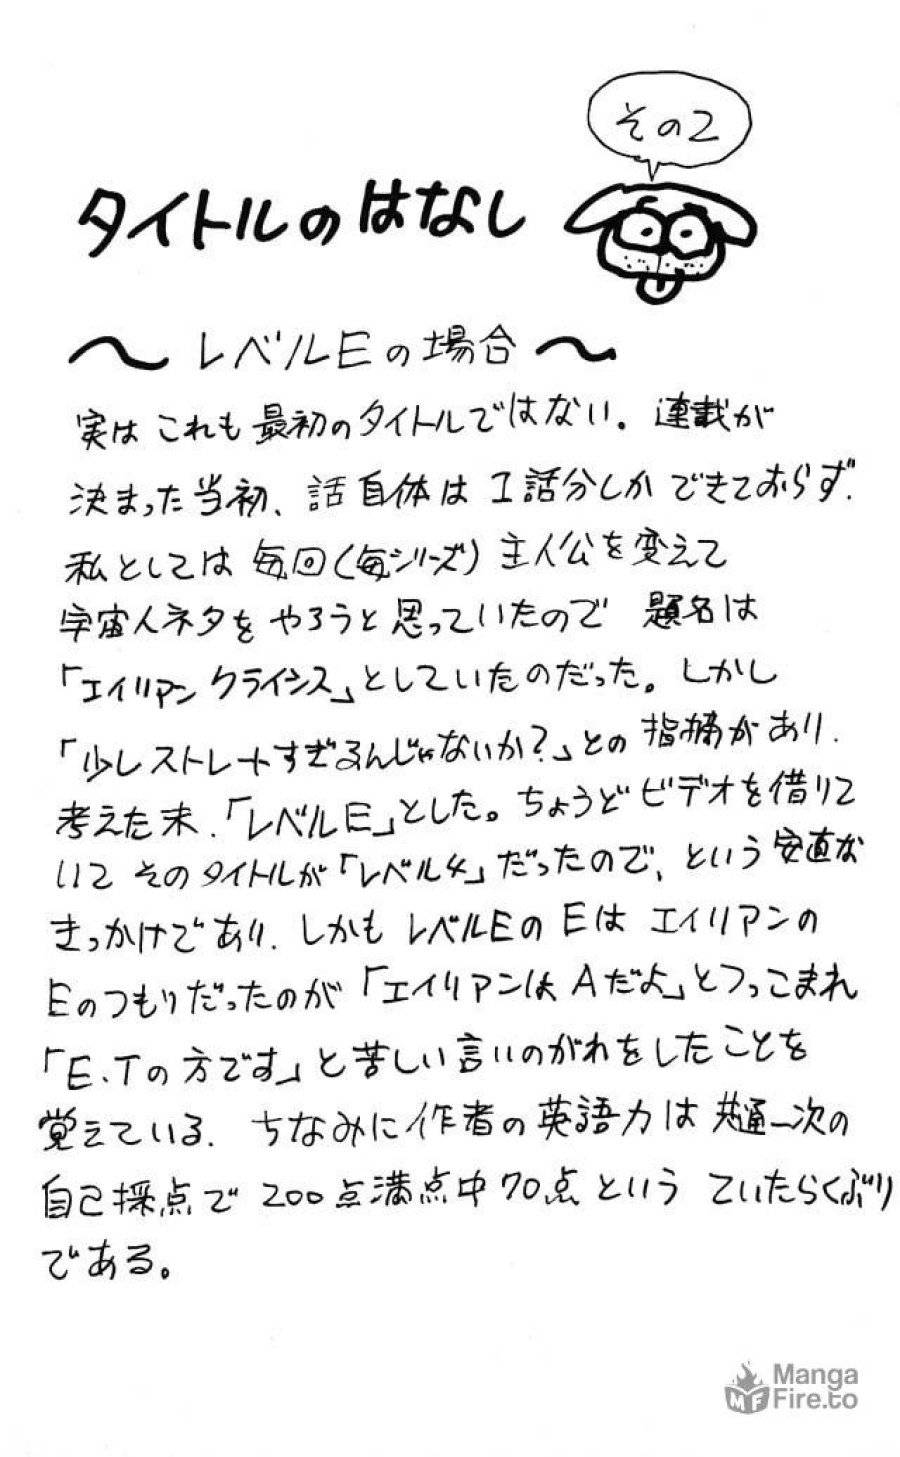 その2
タイトルのはなし
〜レベルEの場合〜
実はこれも最初のタイトルではない。連載が
決まった当初、話自体は1話分しかできておらず、
私としては毎回(毎シリーズ)主人公を変えて
宇宙人ネタをやろうと思っていたので題名は
「エイリアンクライシス」としていたのだった。しかし
「少しストレートすぎるんじゃないか?」との指摘があり、
考えた末、「レベルE」とした。ちょうどビデオを借りて
いてそのタイトルが「レベル4」だったので、という安直な
きっかけであり、しかもレベルEのEはエイリアンの
Eのつもりだったのが「エイリアンはAだよ」とつっこまれ
「E.Tの方です」と苦しい言いのがれをしたことを
覚えている。ちなみに作者の英語力は共通一次の
自己採点で200点満点中70点というていたらくぶり
である。
Manga
Fire.to
MF